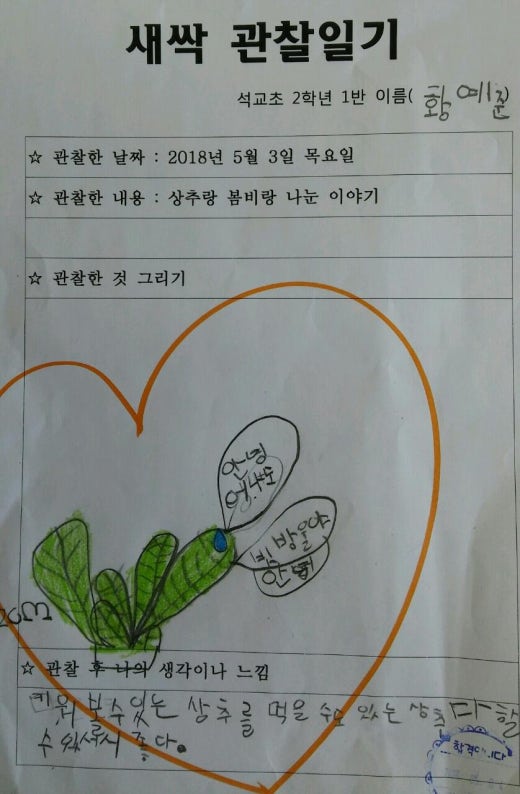 새싹 관찰일기
석교초 2학년 1반 이름( 황예준)
☆ 관찰한 날짜 : 2018년 5월 3일 목요일
☆ 관찰한 내용 : 상추랑 봄비랑 나눈 이야기
☆ 관찰한 것 그리기
안녕
방울아
안녕
☆ 관찰 후 나의 생각이나 느낌
키워 볼수있는 상추를 먹을 수도 있는 상추 다 할
수 있어서 좋다.